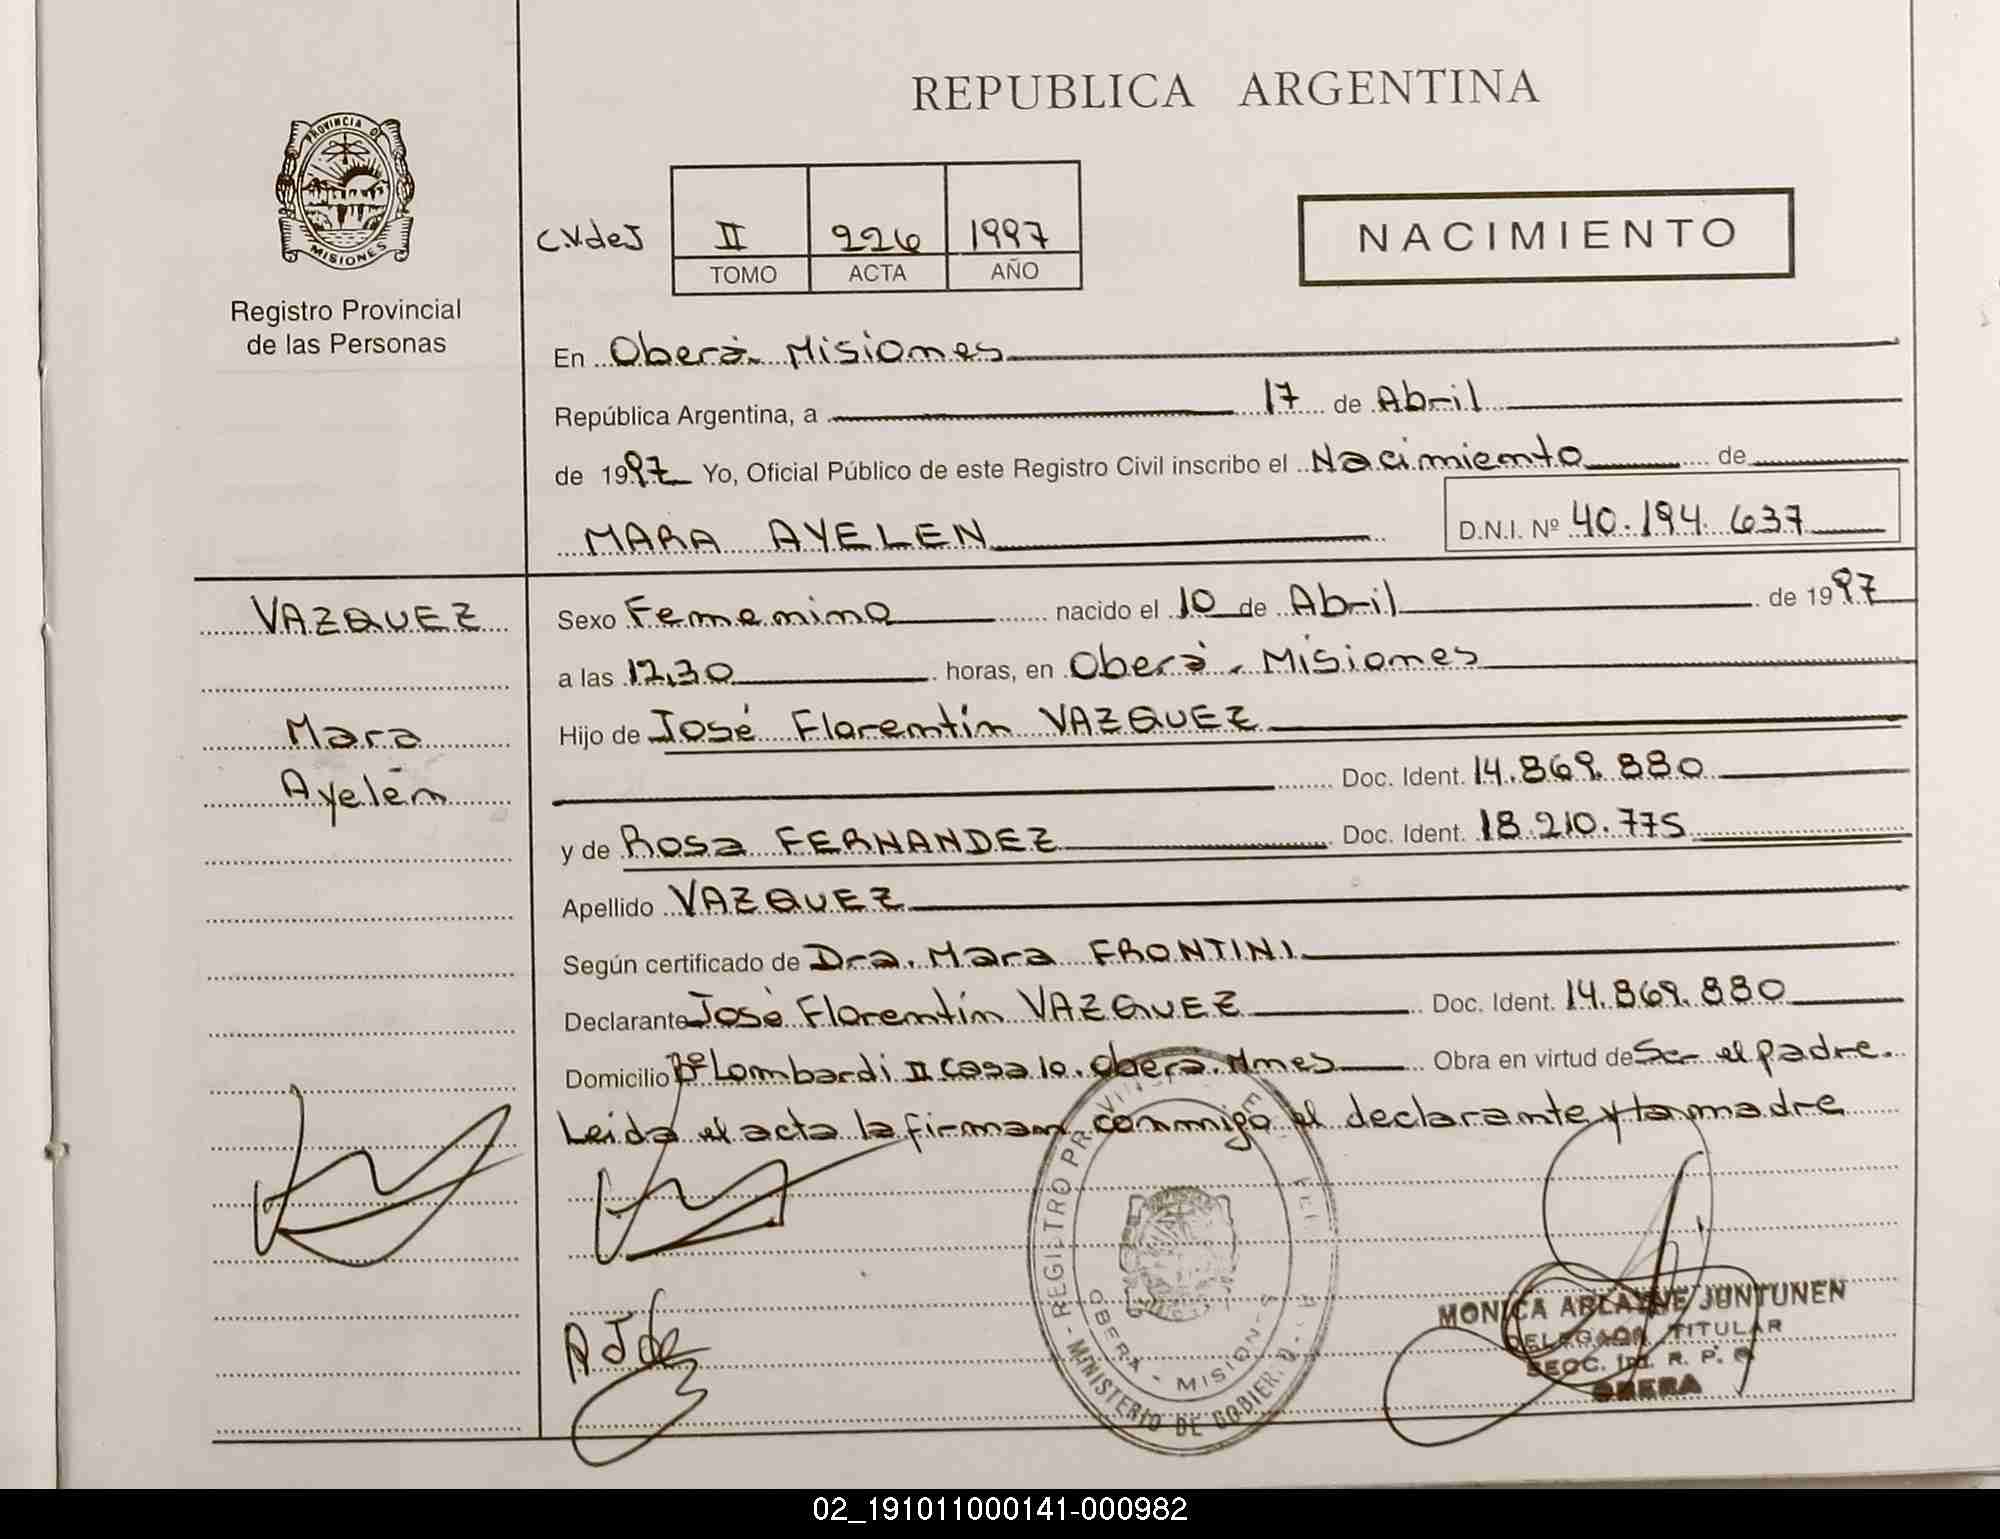 REPUBLICA ARGENTINA
PROVINCIA DE
MISIONES
Registro Provincial
de las Personas
C.V.deJ
II 226 1997
TOMO ACTA AÑO
NACIMIENTO
En Oberá Misiones
República Argentina, a 17 de Abril
de 1997 Yo, Oficial Público de este Registro Civil inscribo el Nacimiento de
MARA AYELEN D.N.I. Nº 40.194.637
VAZQUEZ
Mara
Ayelén
Sexo Femenino nacido el 10 de Abril de 1997
a las 12,30 horas, en Oberá. Misiones
Hijo de José Florentín VAZQUEZ
Doc. Ident. 14.869.880
y de Rosa FERNANDEZ Doc. Ident. 18.210.775
Apellido VAZQUEZ
Según certificado de Dra. Mara FRONTINI
Declarante José Florentín VAZQUEZ Doc. Ident. 14.869.880
Domicilio Bº Lombardi II casa 10. Oberá. Mnes Obra en virtud de Ser el padre.
Leida el acta la firman conmigo el declarante y la madre
REGISTRO PROVIN
OBERA - MISIONES
- MINISTERIO DE GOBIERNO
MONICA ARLAYNE JUNTUNEN
DELEGADA TITULAR
SECC. R. P.
OBERA
02_191011000141-000982